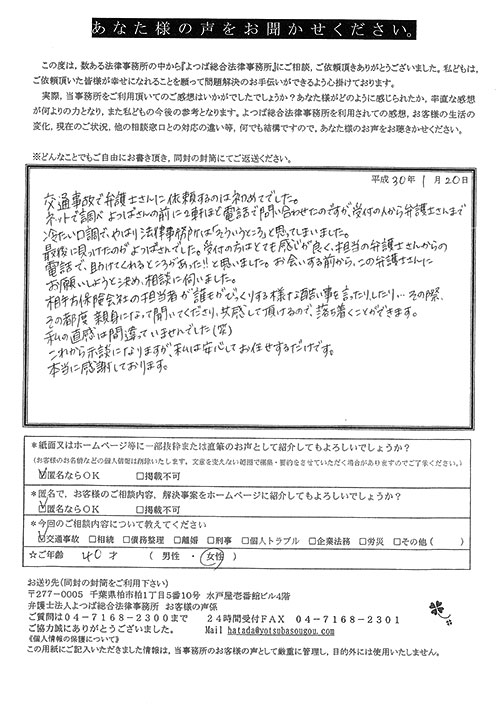 あなた様の声をお聞かせください。
この度は，数ある法律事務所の中から『よつば総合法律事務所』にご相談，ご依頼頂きありがとうございました。私どもは，
ご依頼頂いた皆様が幸せになれることを願って問題解決のお手伝いができるよう心掛けております。
実際，当事務所をご利用頂いてのご感想はいかがでしたでしょうか？あなた様がどのように感じられたか，率直な感想
が何よりの力となり，また私どもの今後の参考となります。よつば総合法律事務所を利用されての感想，お客様の生活の
変化，現在のご状況，他の相談窓口との対応の違い等，何でも結構ですので，あなた様のお声をお聴きかせください。
※どんなことでもご自由にお書き頂き，同封の封筒にてご返送ください。
平成30年 1月20日
交通事故で弁護士さんに依頼するのは初めてでした。
ネットで調べよつばさんの前に2軒ほど電話で問い合わせたのですが、受付の人から弁護士さんまで
冷たい口調で、やはり法律事務所は「そういうところ」と思ってしまいました。
最後に見つけたのがよつばさんでした。受付の方はとても感じが良く、担当の弁護士さんからの
電話で、助けてくれるところがあった!!と思いました。お会いする前から、この弁護士さんに
お願いしようと決め、相談に伺いました。
相手方保険会社の担当者が誰もがびっくりする様な酷い事を言ったり、したり… その際、
その都度、親身になって聞いてくださり、共感して頂けるので、落ち着くことができます。
私の直感は間違っていませんでした(笑)
これから示談になりますが、私は安心してお任せするだけです。
本当に感謝しております。
＊紙面又はホームページ等に一部抜粋または直筆のお声として紹介してもよろしいでしょうか？
（お客様のお名前などの個人情報は削除いたします。文意を変えない範囲で構築・要約をさせていただく場合がありますのでご了承ください。）
☑匿名ならOK □掲載不可
＊匿名で，お客様のご相談内容，解決事案をホームページに紹介してもよろしいでしょうか？
☑匿名ならOK □掲載不可
☆今回のご相談内容について教えてください
☑交通事故 □相続 □債務整理 □離婚 □刑事 □個人トラブル □企業法務 □労災 □その他（ ）
☆ご年齢 40 才 （ 男性 ・ 女性 ）
お送り先（同封の封筒をご利用下さい）
〒277-0005 千葉県柏市柏1丁目5番10号 水戸屋壱番館ビル4階
弁護士法人よつば総合法律事務所 お客様の声係
ご質問は04-7168-2300まで 24時間受付FAX 04-7168-2301
ご協力誠にありがとうございました。 Mail hatada@yotsubasougou.com
《個人情報の保護について》
この用紙にご記入いただきました情報は，当事務所のお客様の声として厳重に管理し，目的外には使用いたしません。